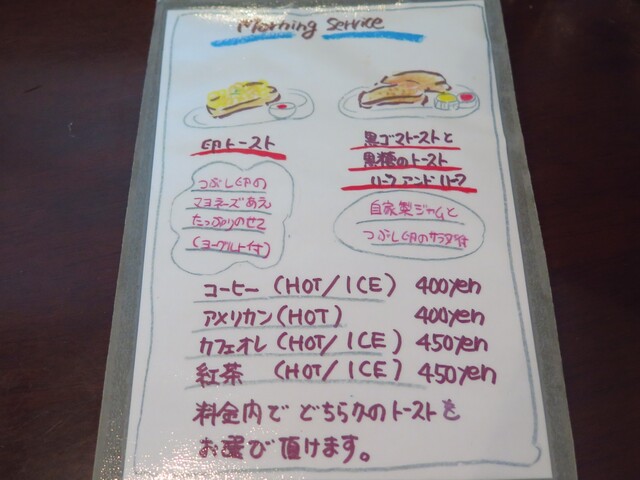 Morning Service
卵トースト
つぶし卵の
マヨネーズあえ
たっぷりのせて
(ヨーグルト付)
黒ゴマトーストと
黒糖のトースト
ハーフアンドハーフ
自家製ジャムと
つぶし卵のサラダ付
コーヒー (HOT/ICE) 400yen
アメリカン(HOT) 400yen
カフェオレ (HOT/ICE) 450yen
紅茶 (HOT/ICE) 450yen
料金内で どちらかのトーストを
お選び頂けます。